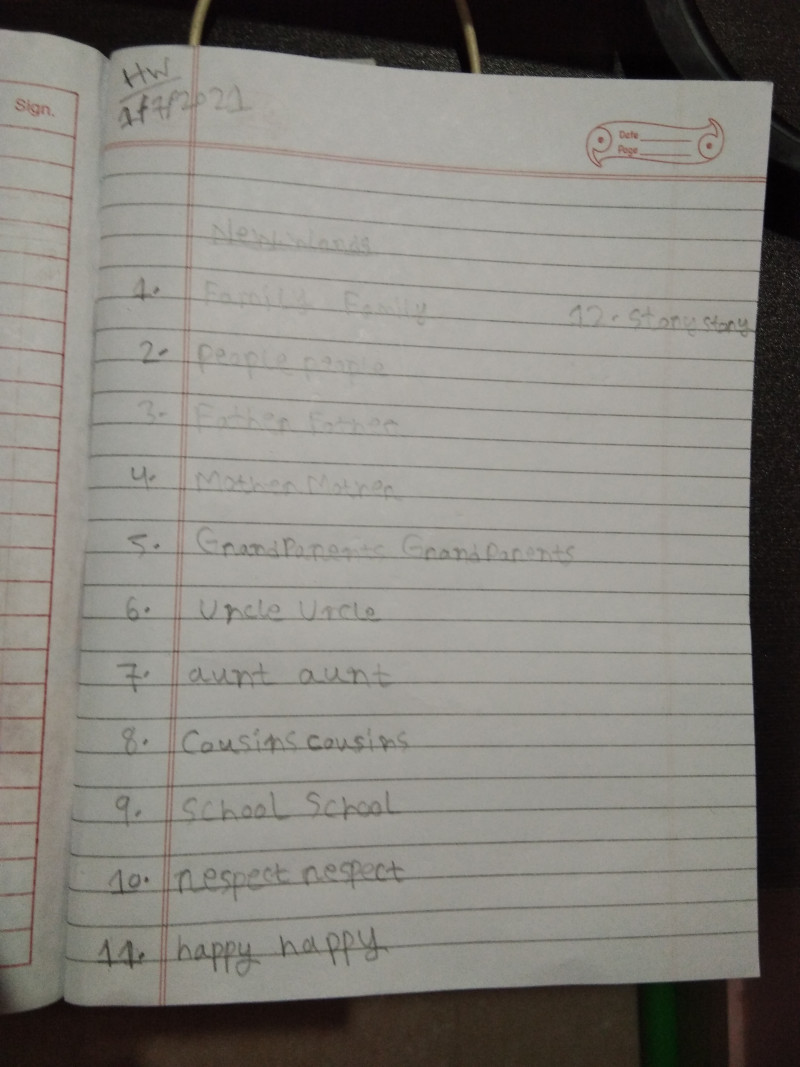 Sign.
HW
1/7/2021
Date
Page
New words
1. Family Family
12. story story
2. people people
3. Father Father
4. Mother Mother
5. GrandParents GrandParents
6. Uncle Uncle
7. aunt aunt
8. Cousins cousins
9. School School
10. respect respect
11. happy happy